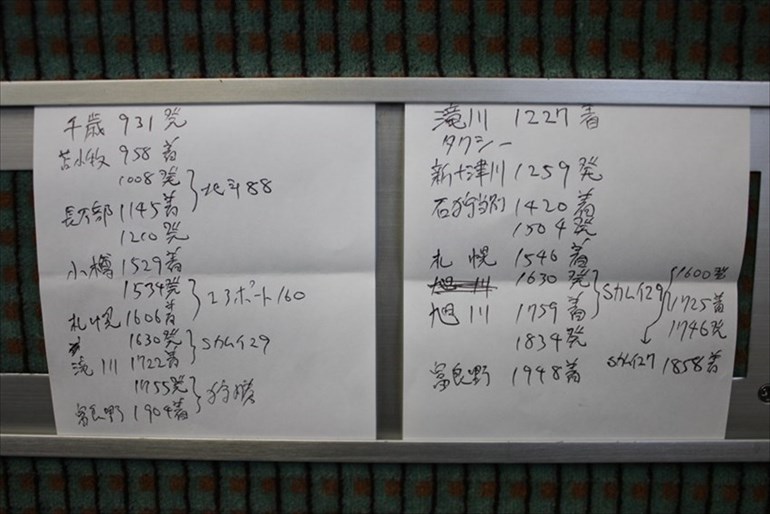 千歳 931発
苫小牧 958着
1008発
北斗88
長万部 1145着
1210発
小樽 1529着
1534発
エアポート160
札幌 1606着
1630発
Sカムイ29
滝川 1722着
1755発
狩勝
富良野 1904着
滝川 1227着
タクシー
新十津川 1259発
石狩当別 1420着
1504発
札幌 1546着
1630発
Sカムイ29
旭川 1759着
1834発
富良野 1948着
1600発
1725着
1746発
Sカムイ27 1858着